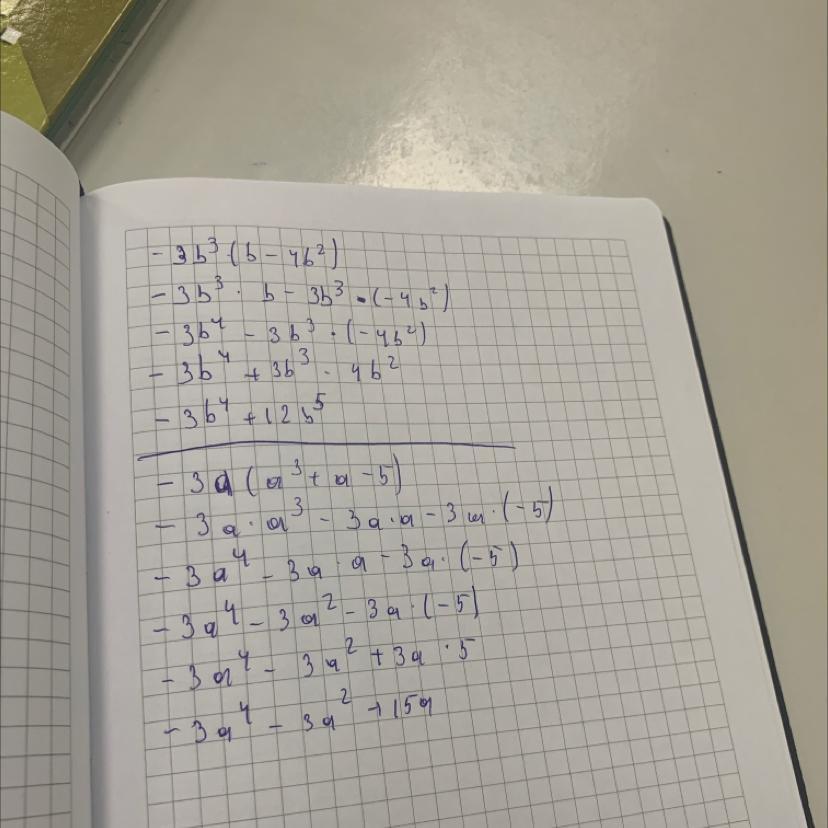 - 3b³·(b - 4b²)
- 3b³ · b - 3b³ · (-4b²)
- 3b⁴ - 3b³ · (-4b²)
- 3b⁴ + 3b³ · 4b²
- 3b⁴ + 12b⁵
- 3a(a³ + a - 5)
- 3a · a³ - 3a · a - 3a · (-5)
- 3a⁴ - 3a · a - 3a · (-5)
- 3a⁴ - 3a² - 3a · (-5)
- 3a⁴ - 3a² + 3a · 5
- 3a⁴ - 3a² + 15a